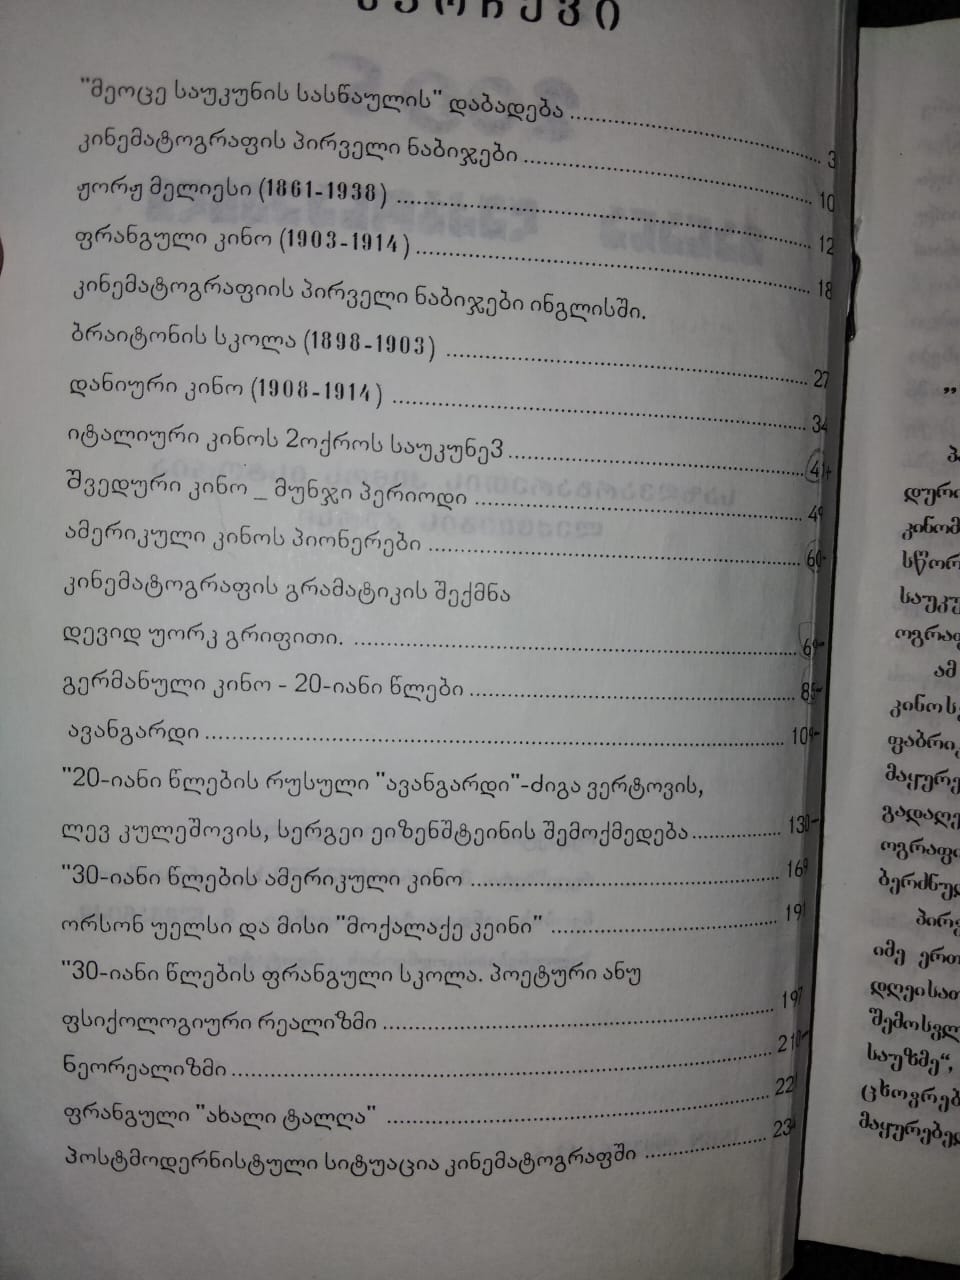 "მეოცე საუკუნის სასწაულის" დაბადება ........ 3
კინემატოგრაფის პირველი ნაბიჯები ........ 10
ჟორჟ მელიესი (1861-1938) ........ 12
ფრანგული კინო (1903-1914) ........ 18
კინემატოგრაფიის პირველი ნაბიჯები ინგლისში.
ბრაიტონის სკოლა (1898-1903) ........ 27
დანიური კინო (1908-1914) ........ 34
იტალიური კინოს 2ოქროს საუკუნე3 ........ 41
შვედური კინო _ მუნჯი პერიოდი ........ 49
ამერიკული კინოს პიონერები ........ 60
კინემატოგრაფის გრამატიკის შექმნა
დევიდ უორკ გრიფითი. ........ 69
გერმანული კინო - 20-იანი წლები ........ 85
ავანგარდი ........
"20-იანი წლების რუსული "ავანგარდი"-ძიგა ვერტოვის,
ლევ კულეშოვის, სერგეი ეიზენშტეინის შემოქმედება ........ 130
"30-იანი წლების ამერიკული კინო ........ 169
ორსონ უელსი და მისი "მოქალაქე კეინი" ........ 191
"30-იანი წლების ფრანგული სკოლა. პოეტური ანუ
ფსიქოლოგიური რეალიზმი ........ 197
ნეორეალიზმი ........ 210
ფრანგული "ახალი ტალღა" ........
პოსტმოდერნისტული სიტუაცია კინემატოგრაფში ........